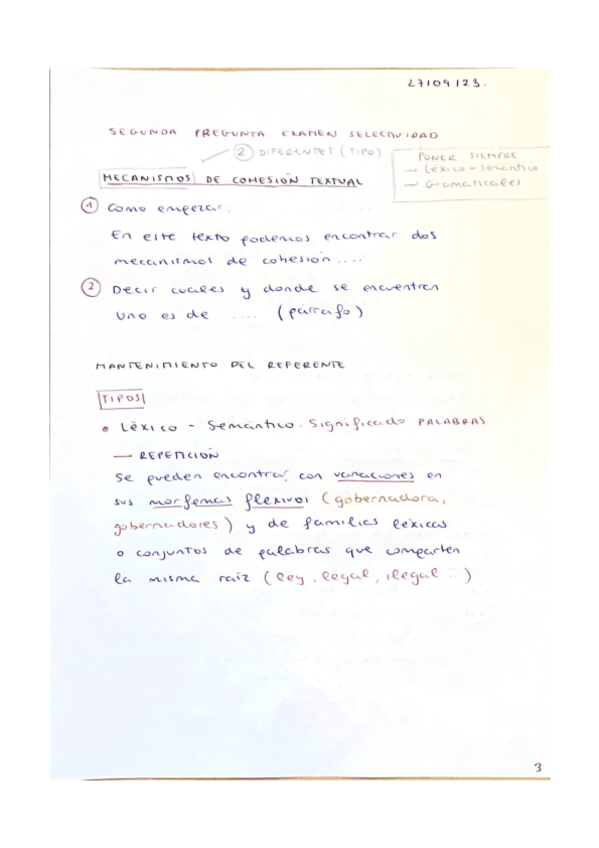 27/09/23.
SEGUNDA PREGUNTA EXAMEN SELECTIVIDAD
② DIFERENTES (TIPO)
PONER SIEMPRE
→ Léxico - semántico
→ Gramaticales
MECANISMOS DE COHESIÓN TEXTUAL
① Como empezar:
En este texto podemos encontrar dos
mecanismos de cohesión ....
② Decir cuales y donde se encuentran
Uno es de .... (párrafo)
MANTENIMIENTO DEL REFERENTE
TIPOS
• Léxico - Semántico. Significado PALABRAS
— REPETICIÓN
Se pueden encontrar con variaciones en
sus morfemas flexivos (gobernadora,
gobernadores) y de familias léxicas
o conjuntos de palabras que comparten
la misma raíz (ley, legal, ilegal ..)
3